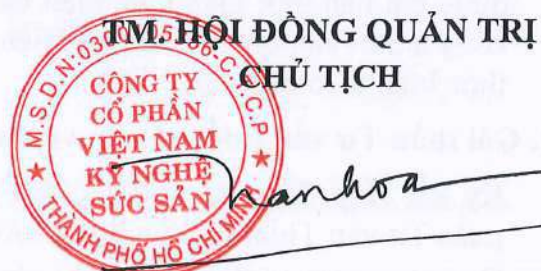 TM. HỘI ĐỒNG QUẢN TRỊ
CHỦ TỊCH
M.S.D.N:0300
C.T.C.P
CÔNG TY
CỔ PHẦN
VIỆT NAM
KỸ NGHỆ
SÚC SẢN
THÀNH PHỐ HỒ CHÍ MINH